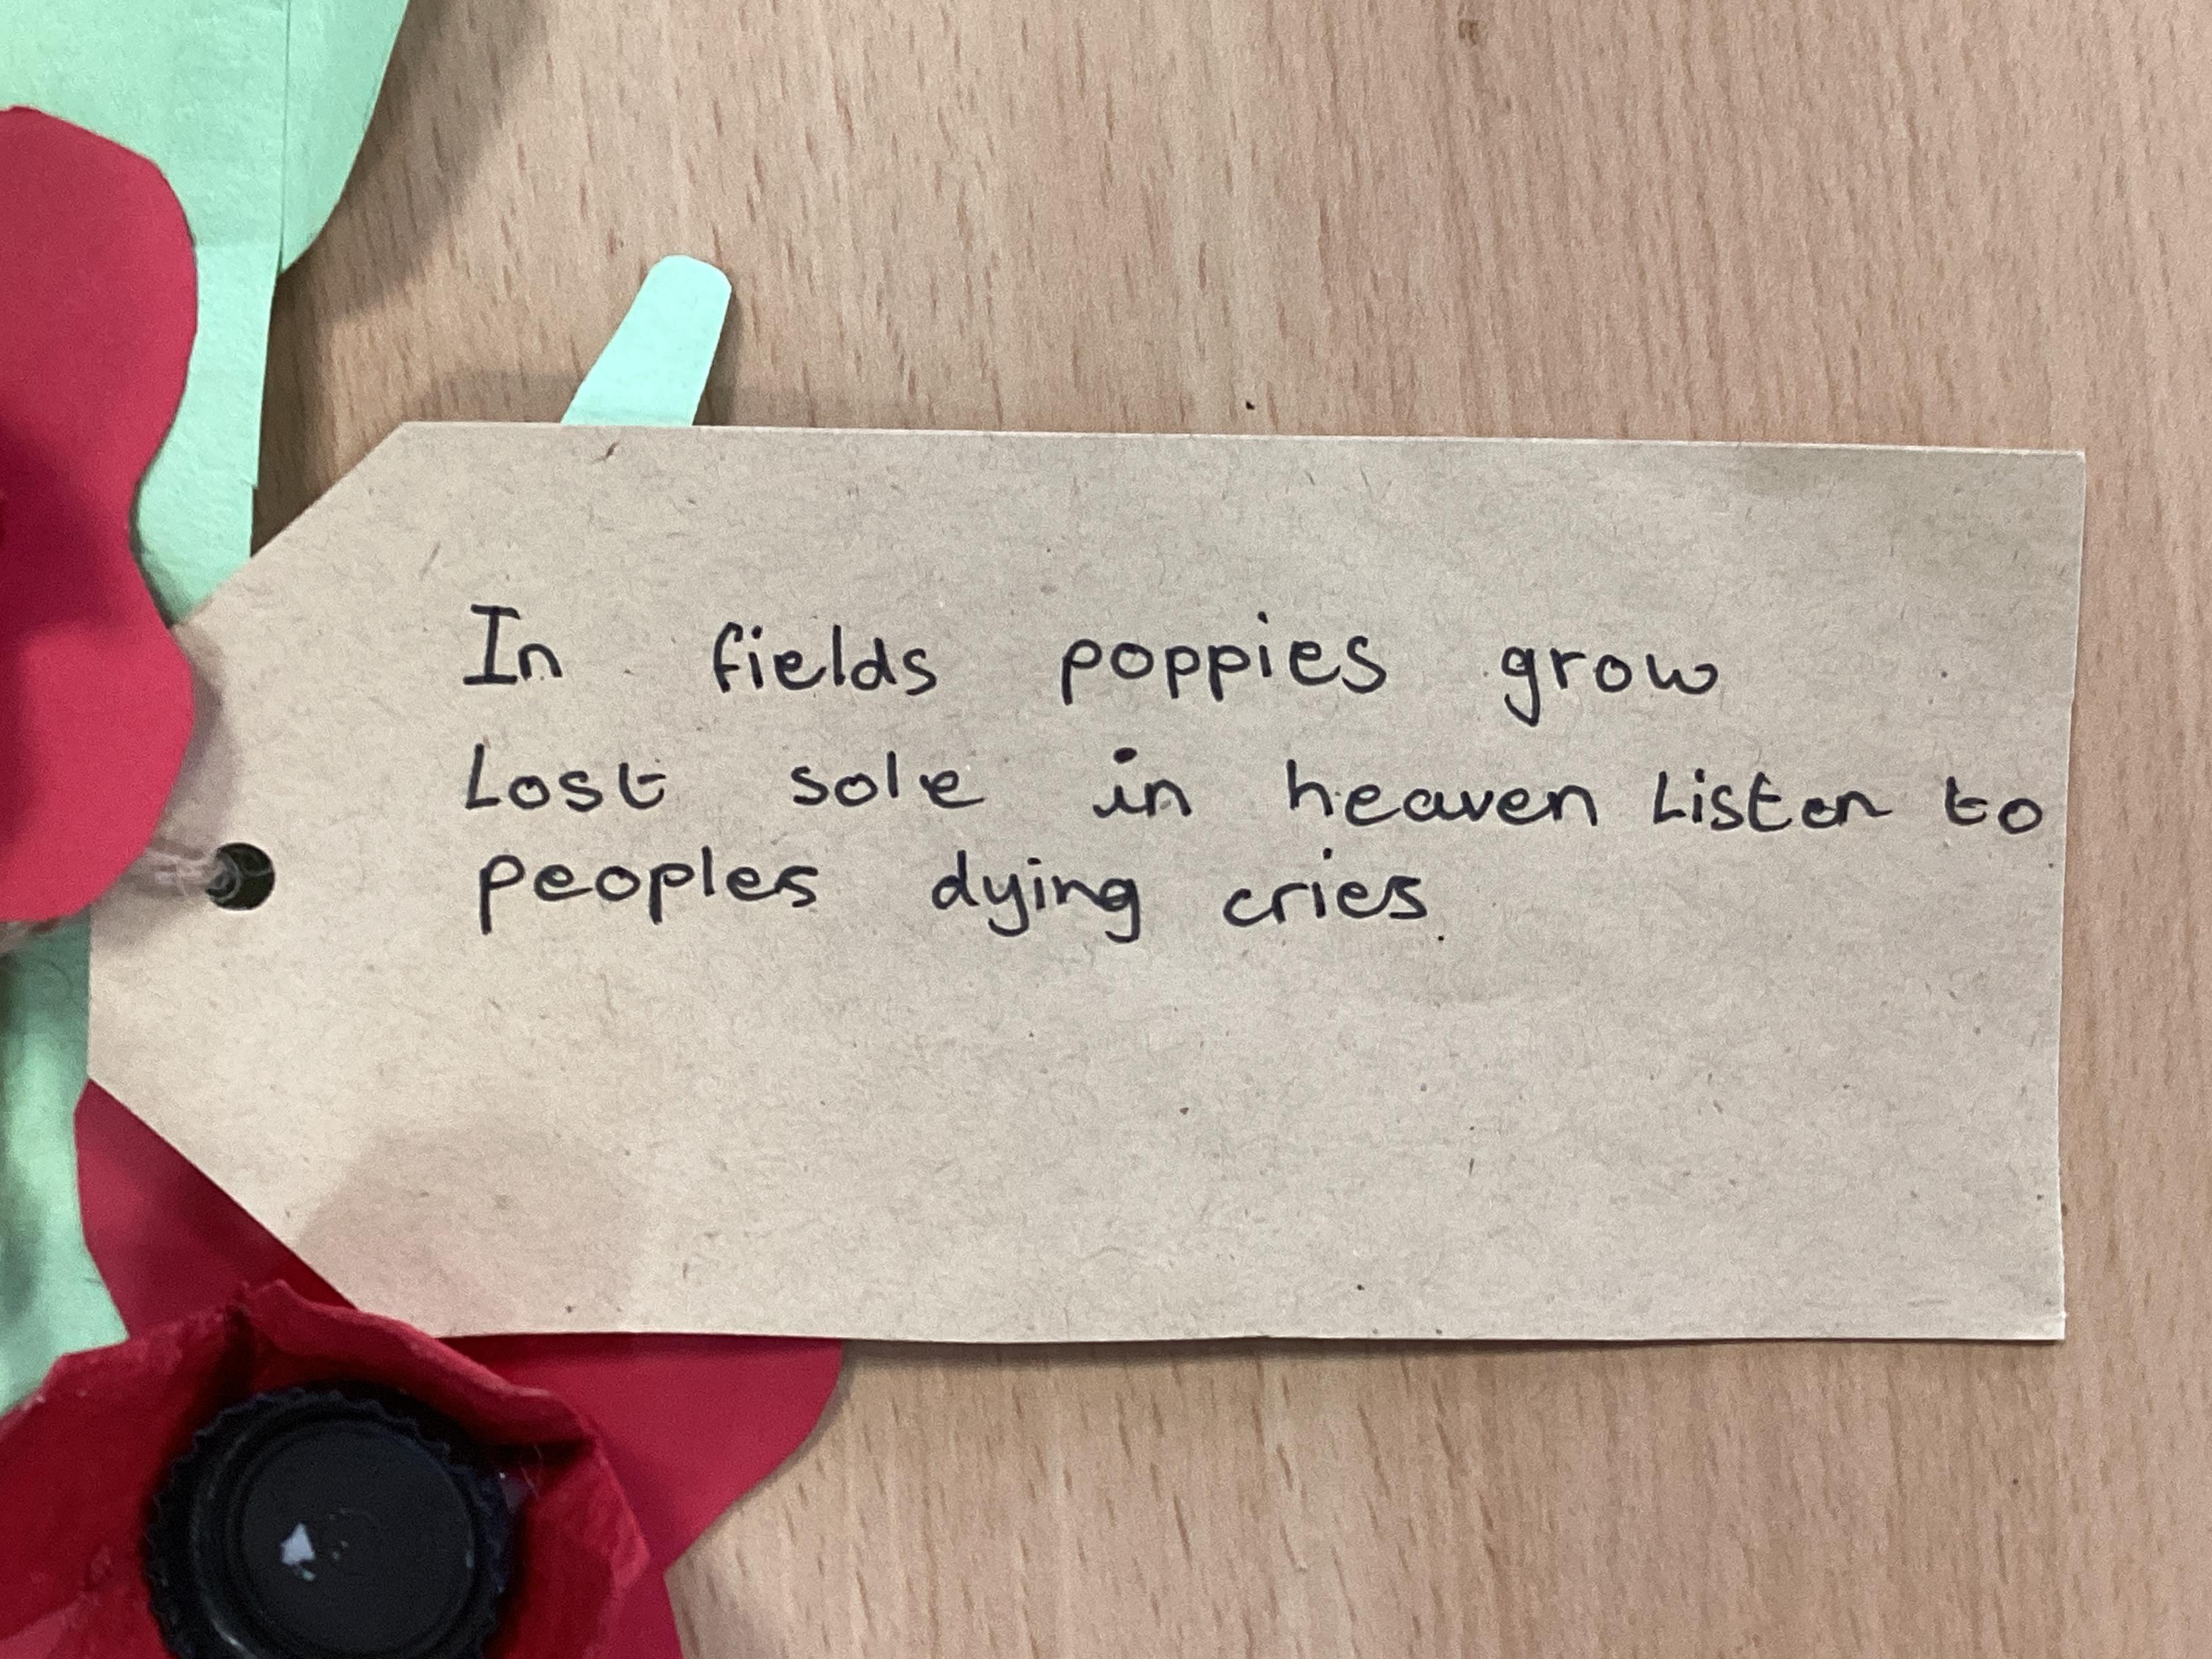 In fields poppies grow
Lost sole in heaven Listen to
peoples dying cries.